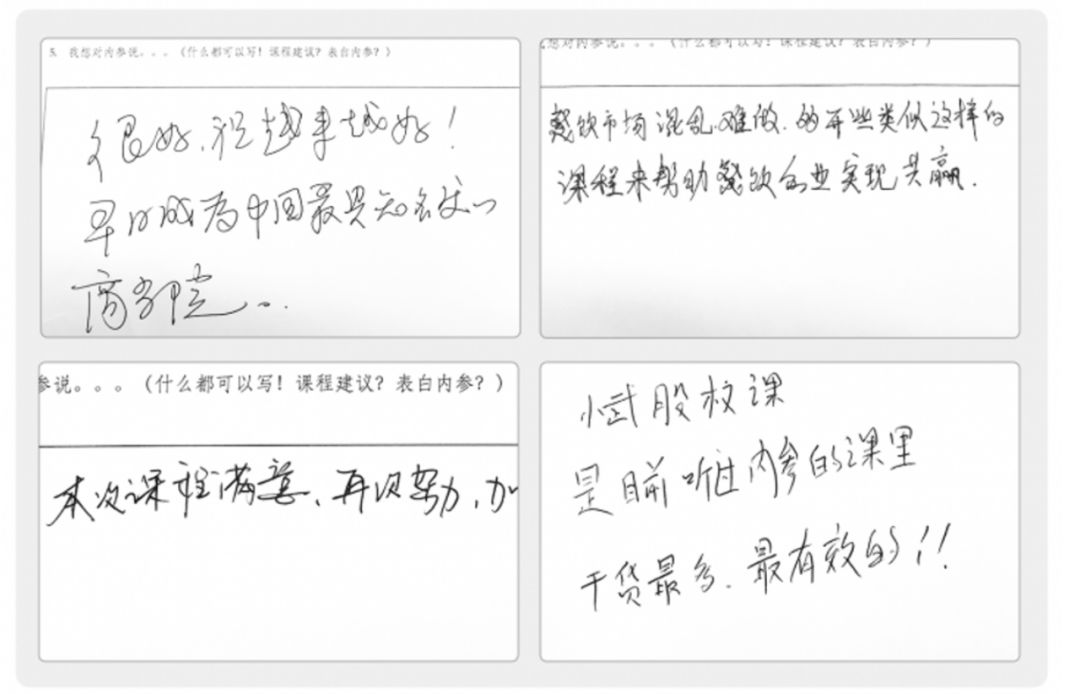 5. 我想对内参说。。。（什么都可以写！课程建议？表白内参？）
很好，祝越来越好！
早日成为中国最具知名度的
商学院。。
想对内参说。。。（什么都可以写！课程建议？表白内参？）
餐饮市场混乱，难做，多开些类似这样的
课程来帮助餐饮企业实现共赢.
参说。。。（什么都可以写！课程建议？表白内参？）
本次课程满意，再次努力，加
小武股权课
是目前听过内参的课里
干货最多，最有效的！！